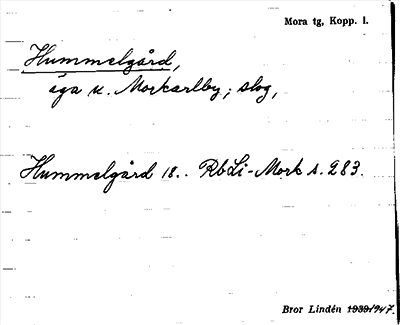 Mora tg, Kopp. l.
Hummelgård,
äga u. Morkarlby; slog,
Hummelgård 18.. RbLi-Mork s. 283.
Bror Lindén 1939/947.